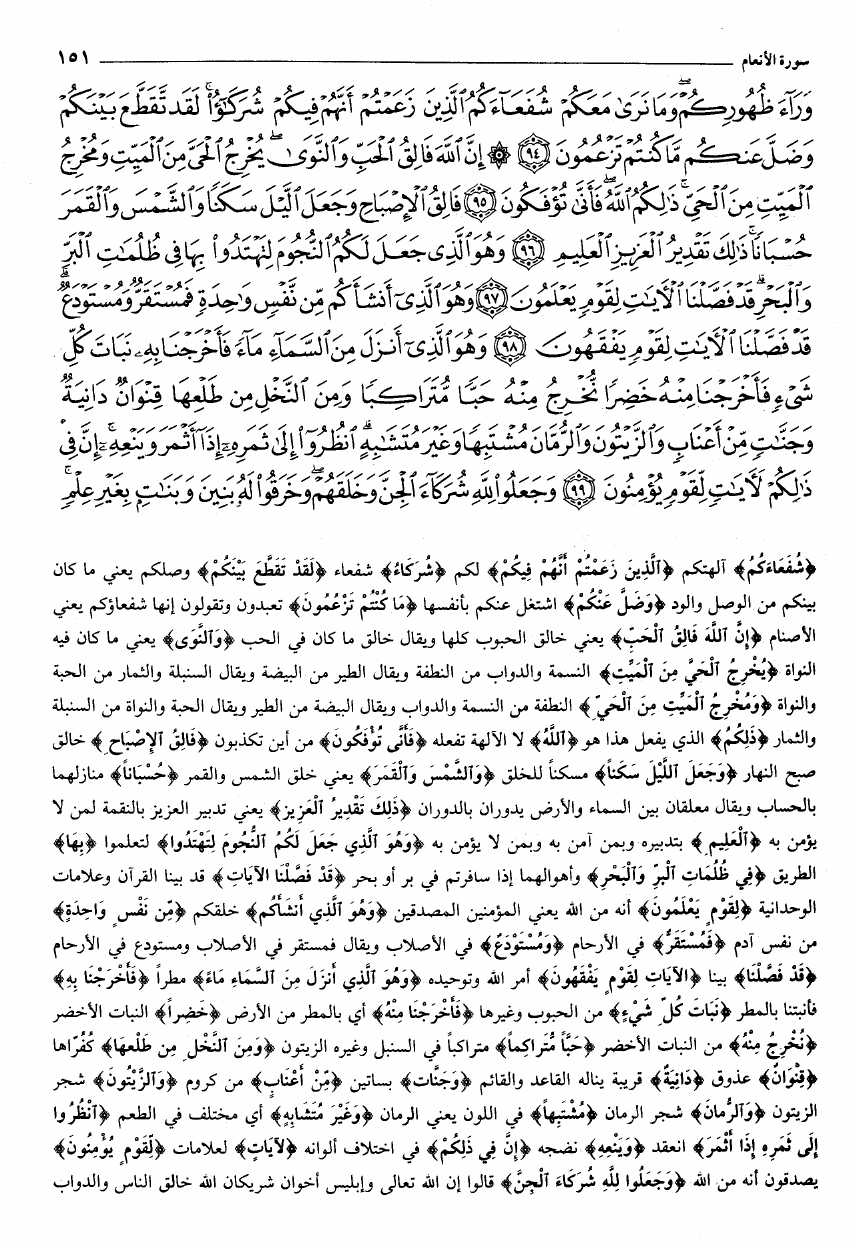 سورة الأنعام ١٥١
وَرَآءَ ظُهُورِكُمْ ۖ وَمَا نَرَىٰ مَعَكُمْ شُفَعَآءَكُمُ ٱلَّذِينَ زَعَمْتُمْ أَنَّهُمْ فِيكُمْ شُرَكَٰٓؤُا۟ ۚ لَقَد تَّقَطَّعَ بَيْنَكُمْ
وَضَلَّ عَنكُم مَّا كُنتُمْ تَزْعُمُونَ ﴿٩٤﴾ ۞ إِنَّ ٱللَّهَ فَالِقُ ٱلْحَبِّ وَٱلنَّوَىٰ ۖ يُخْرِجُ ٱلْحَىَّ مِنَ ٱلْمَيِّتِ وَمُخْرِجُ
ٱلْمَيِّتِ مِنَ ٱلْحَىِّ ۚ ذَٰلِكُمُ ٱللَّهُ ۖ فَأَنَّىٰ تُؤْفَكُونَ ﴿٩٥﴾ فَالِقُ ٱلْإِصْبَاحِ وَجَعَلَ ٱلَّيْلَ سَكَنًا وَٱلشَّمْسَ وَٱلْقَمَرَ
حُسْبَانًا ۚ ذَٰلِكَ تَقْدِيرُ ٱلْعَزِيزِ ٱلْعَلِيمِ ﴿٩٦﴾ وَهُوَ ٱلَّذِى جَعَلَ لَكُمُ ٱلنُّجُومَ لِتَهْتَدُوا۟ بِهَا فِى ظُلُمَٰتِ ٱلْبَرِّ
وَٱلْبَحْرِ ۗ قَدْ فَصَّلْنَا ٱلْءَايَٰتِ لِقَوْمٍ يَعْلَمُونَ ﴿٩٧﴾ وَهُوَ ٱلَّذِىٓ أَنشَأَكُم مِّن نَّفْسٍ وَٰحِدَةٍ فَمُسْتَقَرٌّ وَمُسْتَوْدَعٌ ۗ
قَدْ فَصَّلْنَا ٱلْءَايَٰتِ لِقَوْمٍ يَفْقَهُونَ ﴿٩٨﴾ وَهُوَ ٱلَّذِىٓ أَنزَلَ مِنَ ٱلسَّمَآءِ مَآءً فَأَخْرَجْنَا بِهِۦ نَبَاتَ كُلِّ
شَىْءٍ فَأَخْرَجْنَا مِنْهُ خَضِرًا نُّخْرِجُ مِنْهُ حَبًّا مُّتَرَاكِبًا وَمِنَ ٱلنَّخْلِ مِن طَلْعِهَا قِنْوَانٌ دَانِيَةٌ
وَجَنَّٰتٍ مِّنْ أَعْنَابٍ وَٱلزَّيْتُونَ وَٱلرُّمَّانَ مُشْتَبِهًا وَغَيْرَ مُتَشَٰبِهٍ ۗ ٱنظُرُوٓا۟ إِلَىٰ ثَمَرِهِۦٓ إِذَآ أَثْمَرَ وَيَنْعِهِۦٓ ۚ إِنَّ فِى
ذَٰلِكُمْ لَءَايَٰتٍ لِّقَوْمٍ يُؤْمِنُونَ ﴿٩٩﴾ وَجَعَلُوا۟ لِلَّهِ شُرَكَآءَ ٱلْجِنَّ وَخَلَقَهُمْ ۖ وَخَرَقُوا۟ لَهُۥ بَنِينَ وَبَنَٰتٍۭ بِغَيْرِ عِلْمٍ ۚ
﴿شُفَعَاءَكُمُ﴾ آلهتكم ﴿ٱلَّذِينَ زَعَمْتُمْ أَنَّهُمْ فِيكُمْ﴾ لكم ﴿شُرَكَاءُ﴾ شفعاء ﴿لَقَدْ تَقَطَّعَ بَيْنَكُمْ﴾ وصلكم يعني ما كان
بينكم من الوصل والود ﴿وَضَلَّ عَنْكُمْ﴾ اشتغل عنكم بأنفسها ﴿مَا كُنْتُمْ تَزْعُمُونَ﴾ تعبدون وتقولون إنها شفعاؤكم يعني
الأصنام ﴿إِنَّ ٱللَّهَ فَالِقُ ٱلْحَبِّ﴾ يعني خالق الحبوب كلها ويقال خالق ما كان في الحب ﴿وَٱلنَّوَى﴾ يعني ما كان فيه
النواة ﴿يُخْرِجُ ٱلْحَيَّ مِنَ ٱلْمَيِّتِ﴾ النسمة والدواب من النطفة ويقال الطير من البيضة ويقال السنبلة والثمار من الحبة
والنواة ﴿وَمُخْرِجُ ٱلْمَيِّتِ مِنَ ٱلْحَيِّ﴾ النطفة من النسمة والدواب ويقال البيضة من الطير ويقال الحبة والنواة من السنبلة
والثمار ﴿ذَلِكُمُ﴾ الذي يفعل هذا هو ﴿ٱللَّهُ﴾ لا الآلهة تفعله ﴿فَأَنَّى تُؤْفَكُونَ﴾ من أين تكذبون ﴿فَالِقُ ٱلإِصْبَاحِ﴾ خالق
صبح النهار ﴿وَجَعَلَ ٱللَّيْلَ سَكَناً﴾ مسكناً للخلق ﴿وَٱلشَّمْسَ وَٱلْقَمَرَ﴾ يعني خلق الشمس والقمر ﴿حُسْبَاناً﴾ منازلهما
بالحساب ويقال معلقان بين السماء والأرض يدوران بالدوران ﴿ذَلِكَ تَقْدِيرُ ٱلْعَزِيزِ﴾ يعني تدبير العزيز بالنقمة لمن لا
يؤمن به ﴿ٱلْعَلِيمِ﴾ بتدبيره وبمن آمن به وبمن لا يؤمن به ﴿وَهُوَ ٱلَّذِي جَعَلَ لَكُمُ ٱلنُّجُومَ لِتَهْتَدُوا﴾ لتعلموا ﴿بِهَا﴾
الطريق ﴿فِي ظُلُمَاتِ ٱلْبَرِّ وَٱلْبَحْرِ﴾ وأهوالهما إذا سافرتم في بر أو بحر ﴿قَدْ فَصَّلْنَا الآيَاتِ﴾ قد بينا القرآن وعلامات
الوحدانية ﴿لِقَوْمٍ يَعْلَمُونَ﴾ أنه من الله يعني المؤمنين المصدقين ﴿وَهُوَ ٱلَّذِي أَنشَأَكُم﴾ خلقكم ﴿مِّن نَفْسٍ وَاحِدَةٍ﴾
من نفس آدم ﴿فَمُسْتَقَرٌّ﴾ في الأرحام ﴿وَمُسْتَوْدَعٌ﴾ في الأصلاب ويقال فمستقر في الأصلاب ومستودع في الأرحام
﴿قَدْ فَصَّلْنَا﴾ بينا ﴿الآيَاتِ لِقَوْمٍ يَفْقَهُونَ﴾ أمر الله وتوحيده ﴿وَهُوَ ٱلَّذِي أَنزَلَ مِنَ ٱلسَّمَاءِ مَاءً﴾ مطراً ﴿فَأَخْرَجْنَا بِهِ﴾
فأنبتنا بالمطر ﴿نَبَاتَ كُلِّ شَيْءٍ﴾ من الحبوب وغيرها ﴿فَأَخْرَجْنَا مِنْهُ﴾ أي بالمطر من الأرض ﴿خَضِراً﴾ النبات الأخضر
﴿نُخْرِجُ مِنْهُ﴾ من النبات الأخضر ﴿حَبًّا مُتَرَاكِماً﴾ متراكباً في السنبل وغيره الزيتون ﴿وَمِنَ ٱلنَّخْلِ مِن طَلْعِهَا﴾ كفُرّاها
﴿قِنْوَانٌ﴾ عذوق ﴿دَانِيَةٌ﴾ قريبة يناله القاعد والقائم ﴿وَجَنَّات﴾ بساتين ﴿مِّنْ أَعْنَابٍ﴾ من كروم ﴿وَٱلزَّيْتُونَ﴾ شجر
الزيتون ﴿وَٱلرُّمَانَ﴾ شجر الرمان ﴿مُشْتَبِهاً﴾ في اللون يعني الرمان ﴿وَغَيْرَ مُتَشَابِهٍ﴾ أي مختلف في الطعم ﴿ٱنْظُرُوا
إِلَى ثَمَرِهِ إِذَا أَثْمَرَ﴾ انعقد ﴿وَيَنْعِهِ﴾ نضجه ﴿إِنَّ فِي ذَلِكُمْ﴾ في اختلاف ألوانه ﴿لآيَاتٍ﴾ لعلامات ﴿لِّقَوْمٍ يُؤْمِنُونَ﴾
يصدقون أنه من الله ﴿وَجَعَلُوا لِلَّهِ شُرَكَاءَ ٱلْجِنَّ﴾ قالوا إن الله تعالى وإبليس أخوان شريكان الله خالق الناس والدواب